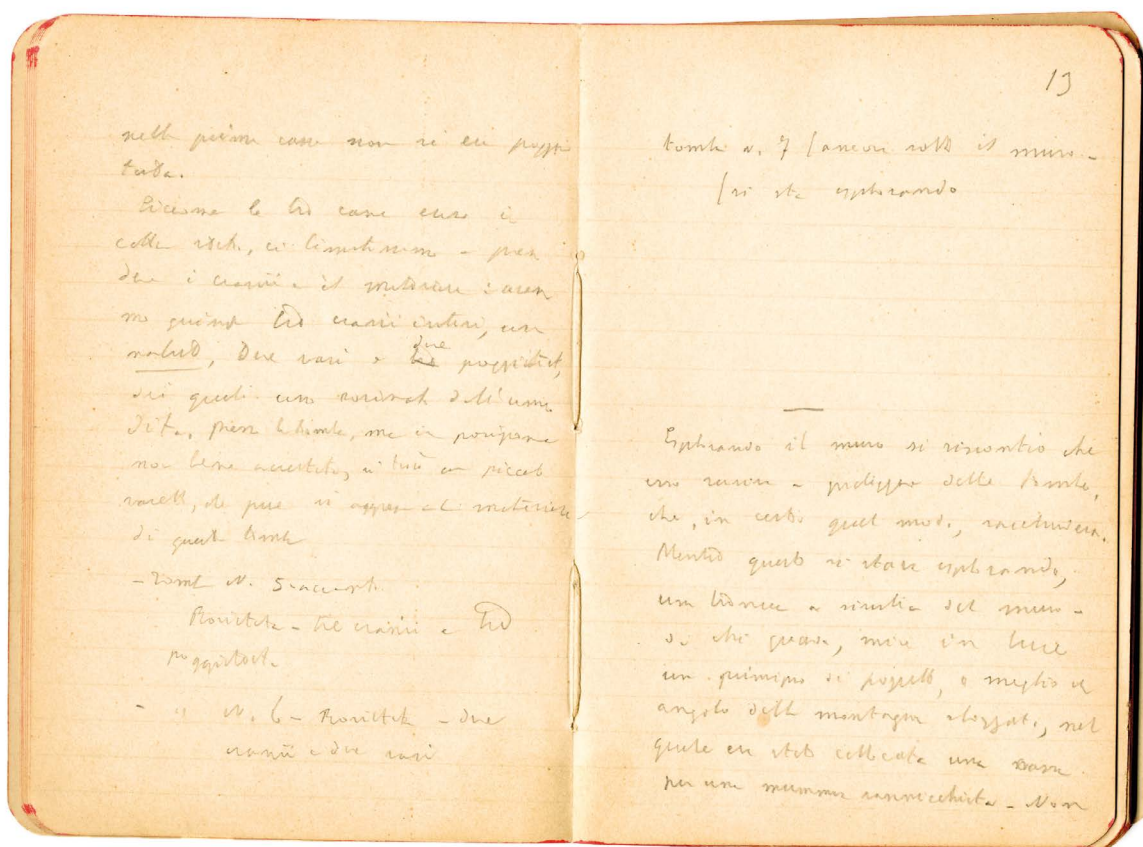 nella prima cassa non si era poggia
testa.
Siccome le tre casse erano i
colla, ci limitammo a pren
dere i cranii e il materiale: avem
mo quindi tre cranii interi, un
due
due vasi e tre poggiatesta,
dei quali uno rovinato dall'umi
dità. presso la tomba, ma in posizione
non bene accertata, si trovò un piccolo
vasetto, che pure si aggiunge al materiale
di questa tomba
- Tomba N. 5 accanto.
Rovistata - tre cranii e tre
poggiatesta.
- " N. 6 - Rovistata - due
cranii e due vasi
13
tomba n. 7 (ancora sotto il muro -
(si sta esplorando
Esplorando il muro si riscontrò che
era a protegger delle tombe,
che, in certo qual modo, racchiudeva.
Mentre questo si stava esplorando,
una trincea a sinistra del muro -
di chi guarda, mise in luce
un principio di pozzetto, o meglio un
angolo della montagna sbozzato, nel
quale era stata collocata una cassa
per una mummia rannicchiata - Non